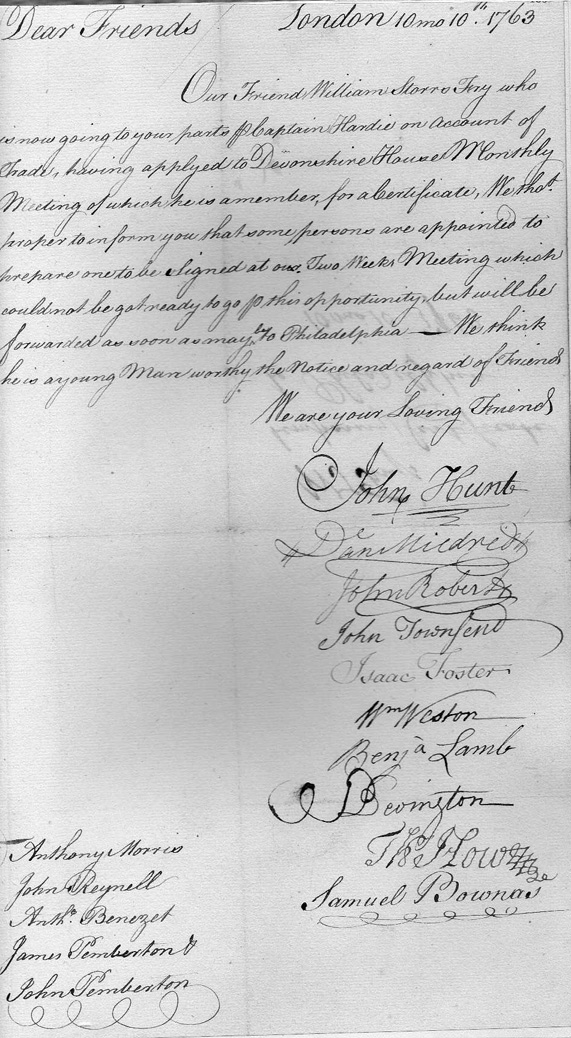 Dear Friends London 10mo 10th. 1763
Our Friend William Storrs Fry who
is now going to your parts ⅌ Captain Hardie on account of
Trade, having applyed to Devonshire House Monthly
Meeting of which he is a member, for a Certificate, We thot.
proper to inform you that some persons are appointed to
prepare one to be signed at our Two Weeks Meeting which
could not be got ready to go ⅌ this opportunity, but will be
forwarded as soon as may be to Philadelphia — We think
he is a young Man worthy the Notice and regard of Friends
We are your Loving Friends
John Hunt
Danl Mildred
John Roberts
John Townsend
Isaac Foster
Wm Weston
Benja Lamb
Bevington
Thos How
Samuel Bownas
Anthony Morris
John Reynell
Anthy. Benezet
James Pemberton &
John Pemberton